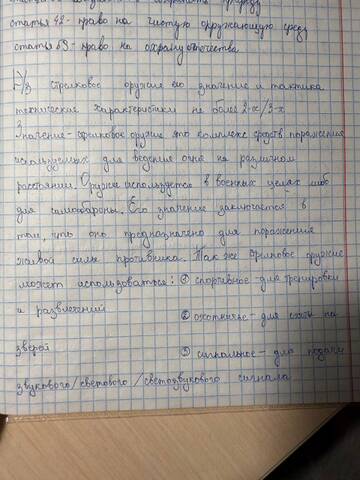 статья 42 - право на чистую окружающую среду
статья 59 - право на охрану отечества
Д/з стрелковое оружие его значение и тактико
технические характеристики не более 2-х/3-х
Значение - стрелковое оружие это комплекс средств поражения
используемых для ведения огня на различном
расстоянии. Оружие используется в военных целях либо
для самообороны. Его значение заключается в
том, что оно предназначено для поражения
живой силы противника. Так же стрелковое оружие
может использоваться: ① спортивное - для тренировки
и развлечений
② охотничье - для охоты на
зверей
③ сигнальное - для подачи
звукового/светового/светозвукового сигнала